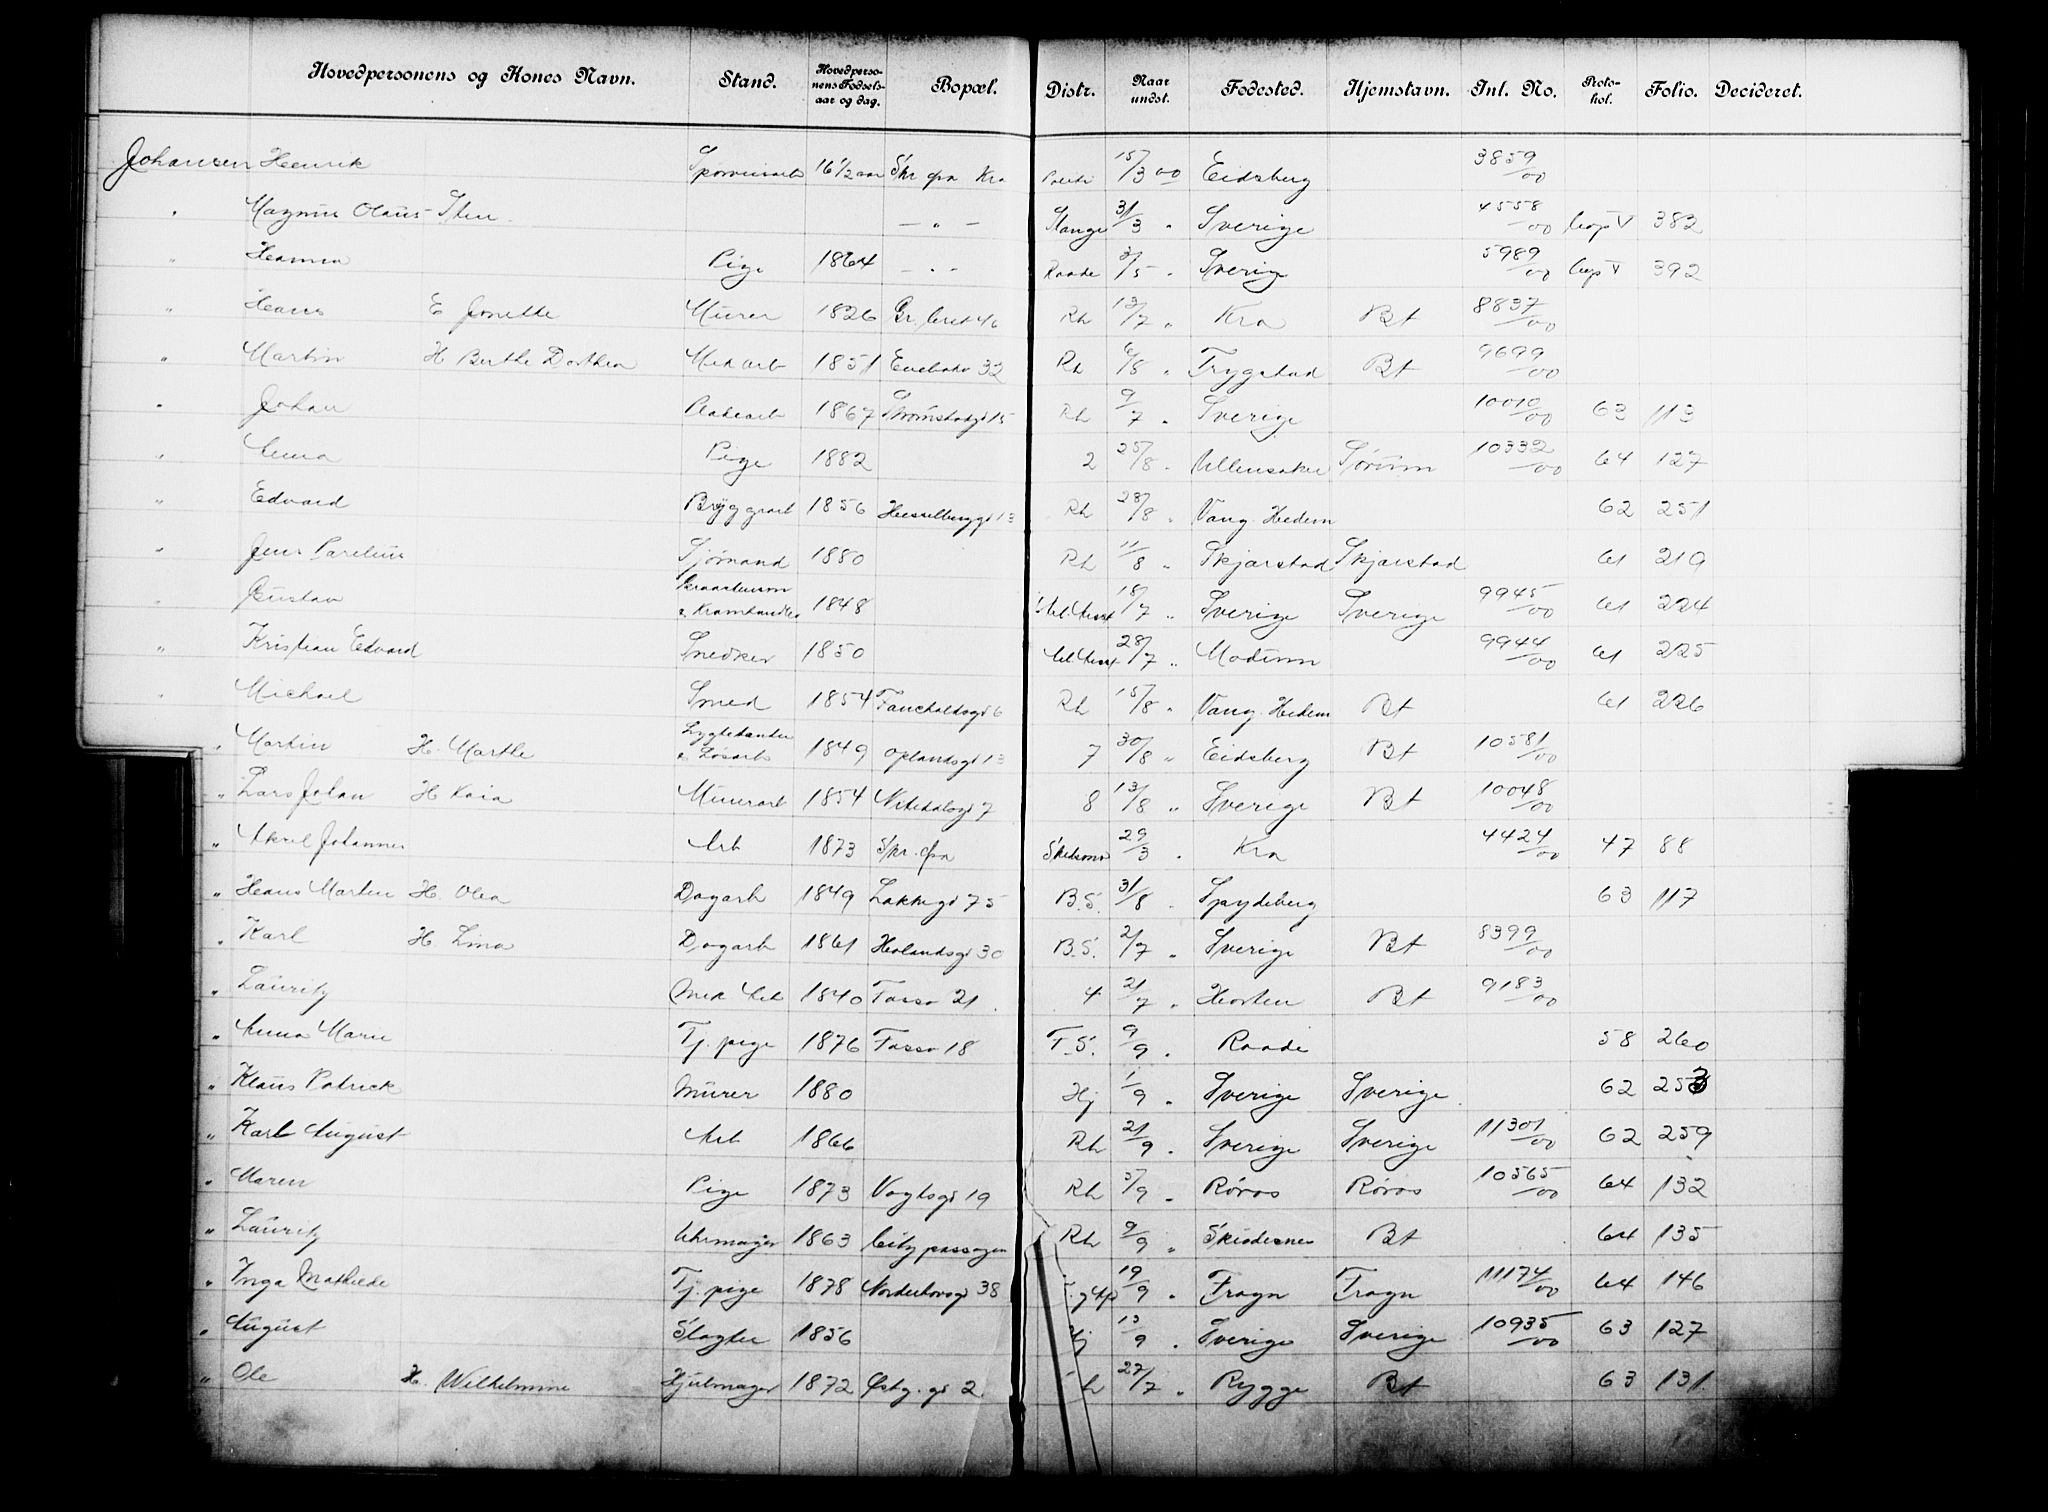 Hovedpersonens og Kones Navn. Stand. Hovedpersonens Fødselsaar og dag. Bopæl. Distr. Naar undst. Fødested. Hjemstavn. Inl. No. Protokol. Folio. Decideret.
Johansen Henrik 16 1/2 aar Skr. fra Kra 15/3 00 Eidsberg 3859/00
" Magnus Olaus Sten — " — Stange 31/3 " Sverige 4558/00 Cop V 382
" Hanna Pige 1864 — " — Raade 3/5 " Sverige 5989/00 Cop V 392
" Hans E Jonette Murer 1826 Rh 13/7 " Kra Bt 8837/00
" Martin H Berthe Dorthea Mek arb 1851 Enebakv 32 Rh 6/8 " Trygstad Bt 9699/00
" Johan Pladearb 1867 Strømstadgd 15 Rh 9/7 " Sverige 10010/00 63 113
" Anna Pige 1882 2 25/8 " Ullensaker Sørum 10332/00 64 127
" Edvard Bryggearb 1856 Hesselberggd 13 Rh 28/8 " Vang Hedem 62 251
" Jens Parelius Sjømand 1880 Rh 11/8 " Skjærstad Skjærstad 61 219
" Gustav & Kramhandler 1848 18/7 " Sverige Sverige 9945/00 61 224
" Kristian Edvard Snedker 1850 28/7 " Modum 9944/00 61 225
" Michael Smed 1854 Fauchaldsgd 6 Rh 15/8 " Vang Hedem Bt 61 226
" Martin H. Marthe Lygtetænder & Løsarb 1849 Oplandsgd 13 7 30/8 " Eidsberg Bt 10581/00
" Lars Johan H Kaia Murarb 1854 Nitedalsgd 7 8 13/8 " Sverige Bt 10048/00
" Aksel Johannes Arb 1873 Skr. fra Skedsmo 29/3 " Kra 4424/00 47 88
" Hans Martin H. Olea Dagarb 1849 Lakkegd 75 B.S. 31/8 " Spydeberg 63 117
" Karl H. Lina Dagarb 1861 Hølandsgd 30 B.S. 2/7 " Sverige Bt 8399/00
" Lauritz Mek Arb 1840 Fossv 21. 4 21/7 " Horten Bt 9183/00
" Anna Marie Tj. pige 1876 Fossv 18 T.S. 9/9 " Raade 58 260
" Klaus Patrick Murer 1880 Hj 1/9 " Sverige Sverige 62 253
" Karl August Arb 1866 Rh 21/9 " Sverige Sverige 11301/00 62 259
" Maren Pige 1873 Vogtsgd 19 Rh 5/9 " Røros Røros 10565/00 64 132
" Lauritz Uhrmager 1863 Citypassagen Rh 9/9 " Skudesnes Bt 64 135
" Inga Mathilde Tj. pige 1878 Norderhovsgd 38 19/9 " Frogn Frogn 11174/00 64 146
" August Slagter 1856 Hj 13/9 " Sverige Sverige 10935/00 63 127
" Ole H. Wilhelmine Hjulmager 1872 Østby. gd 2. 27/7 " Rygge Bt 63 131.